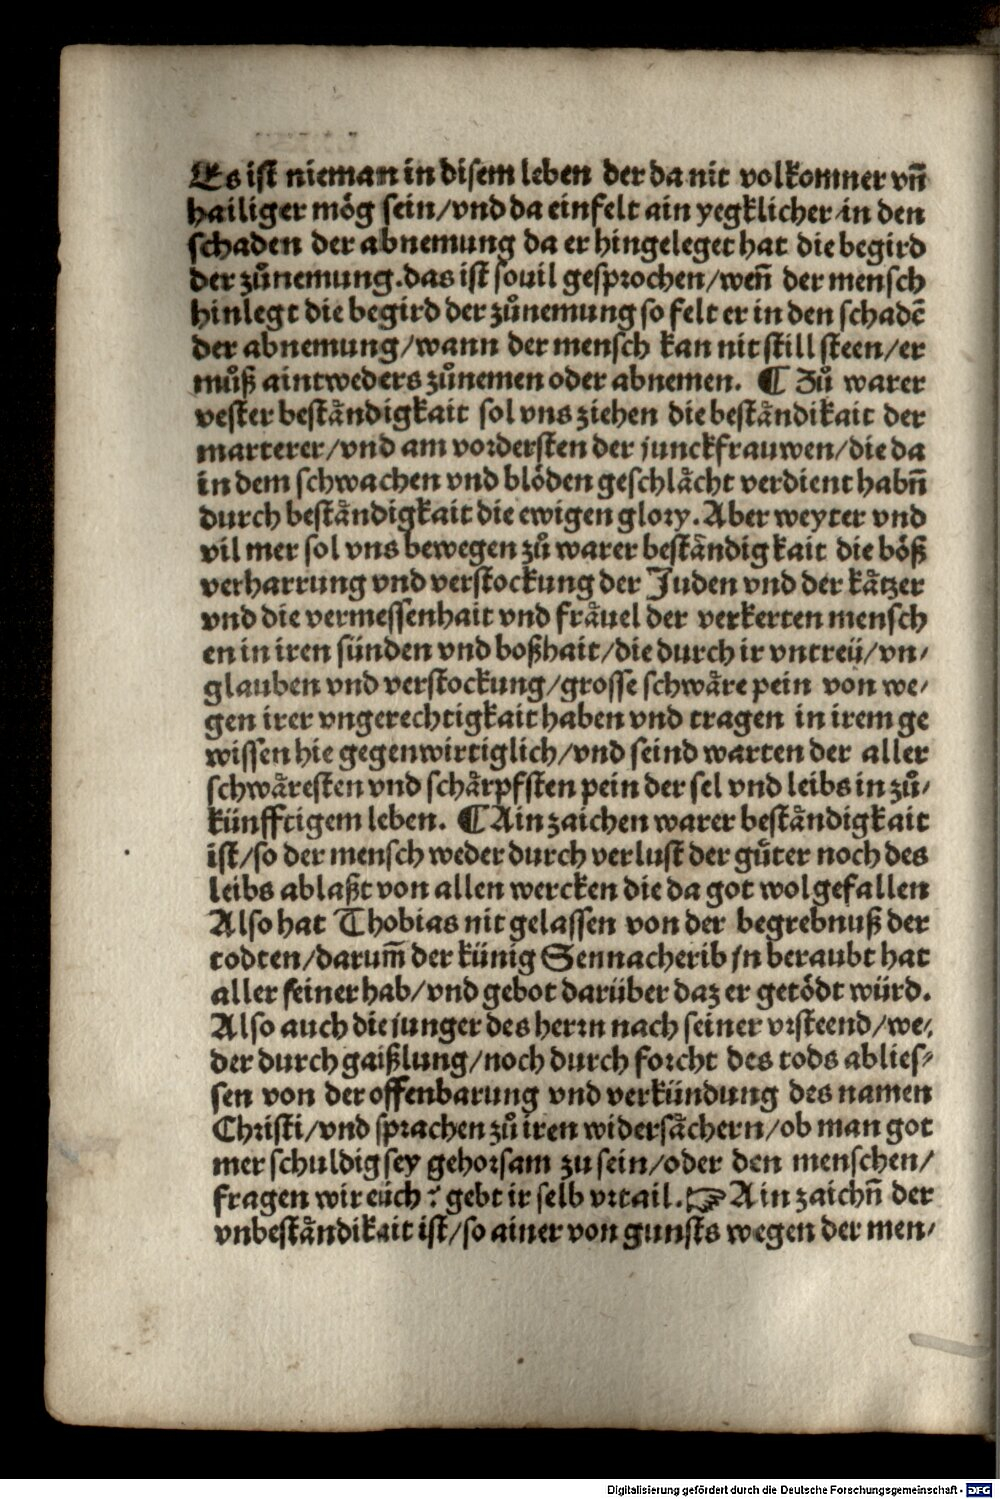 Es ist nieman in disem leben der da nit volkommer vñ
hailiger mög sein/vnd da einfelt ain yegklicher in den
schaden der abnemung da er hingeleget hat die begird
der zůnemung.das ist souil gesprochen/weñ der mensch
hinlegt die begird der zůnemung so felt er in den schadē
der abnemung/wann der mensch kan nit still steen/er
můß aintweders zůnemen oder abnemen. ¶ Zů warer
vester beståndigkait sol vns ziehen die beståndikait der
marterer/vnd am vordersten der junckfrauwen/die da
in dem schwachen vnd blöden geschlåcht verdient habñ
durch beståndigkait die ewigen glory.Aber weyter vnd
vil mer sol vns bewegen zů warer beståndigkait die böß
verharrung vnd verstockung der Juden vnd der kåtzer
vnd die vermessenhait vnd fråuel der verkerten mensch
en in iren sünden vnd boßhait/die durch ir vntreü/vn/
glauben vnd verstockung/grosse schwåre pein von we/
gen irer vngerechtigkait haben vnd tragen in irem ge
wissen hie gegenwirtiglich/vnd seind warten der aller
schwåresten vnd schårpfsten pein der sel vnd leibs in zů/
künfftigem leben. ¶ Ain zaichen warer beståndigkait
ist/so der mensch weder durch verlust der gůter noch des
leibs ablaßt von allen wercken die da got wolgefallen
Also hat Thobias nit gelassen von der begrebnuß der
todten/darum̃ der künig Sennacherib jn beraubt hat
aller seiner hab/vnd gebot darüber daz er getödt würd.
Also auch die junger des herrn nach seiner vrsteend/we/
der durch gaißlung/noch durch forcht des tods ablies/
sen von der offenbarung vnd verkündung des namen
Christi/vnd sprachen zů iren widersåchern/ob man got
mer schuldig sey gehorsam zu sein/oder den menschen/
fragen wir eüch? gebt ir selb vrtail.☞ Ain zaichñ der
vnbeståndikait ist/so ainer von gunsts wegen der men/
Digitalisierung gefördert durch die Deutsche Forschungsgemeinschaft - DFG